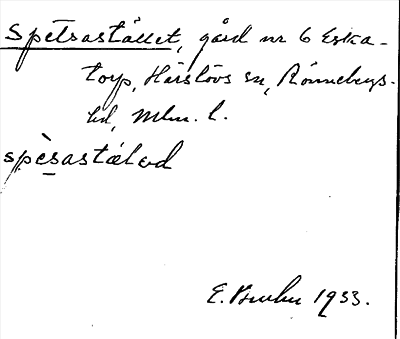 Spetsastället, gård nr 6 Eska-
torp, Härslövs sn, Rönnebergs-
hd, Mlm. l.
spèsastæləd
E. 1933.